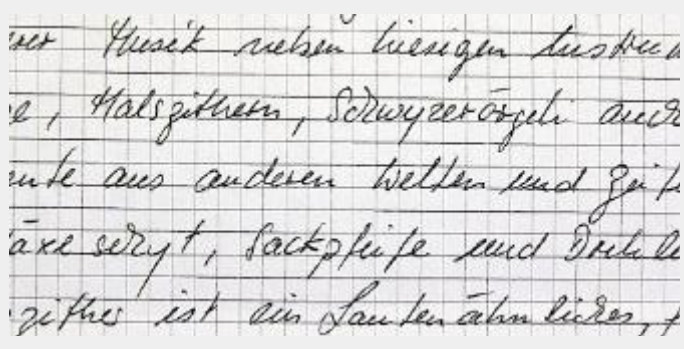 erer Musik neben hiesigen Instru
e, Halszithern, Schwyzerörgeli auch
ente aus anderen Welten und Zeit
äxeschyt, Sackpfeife und Drehle
zither ist ein Lautenähnliches,